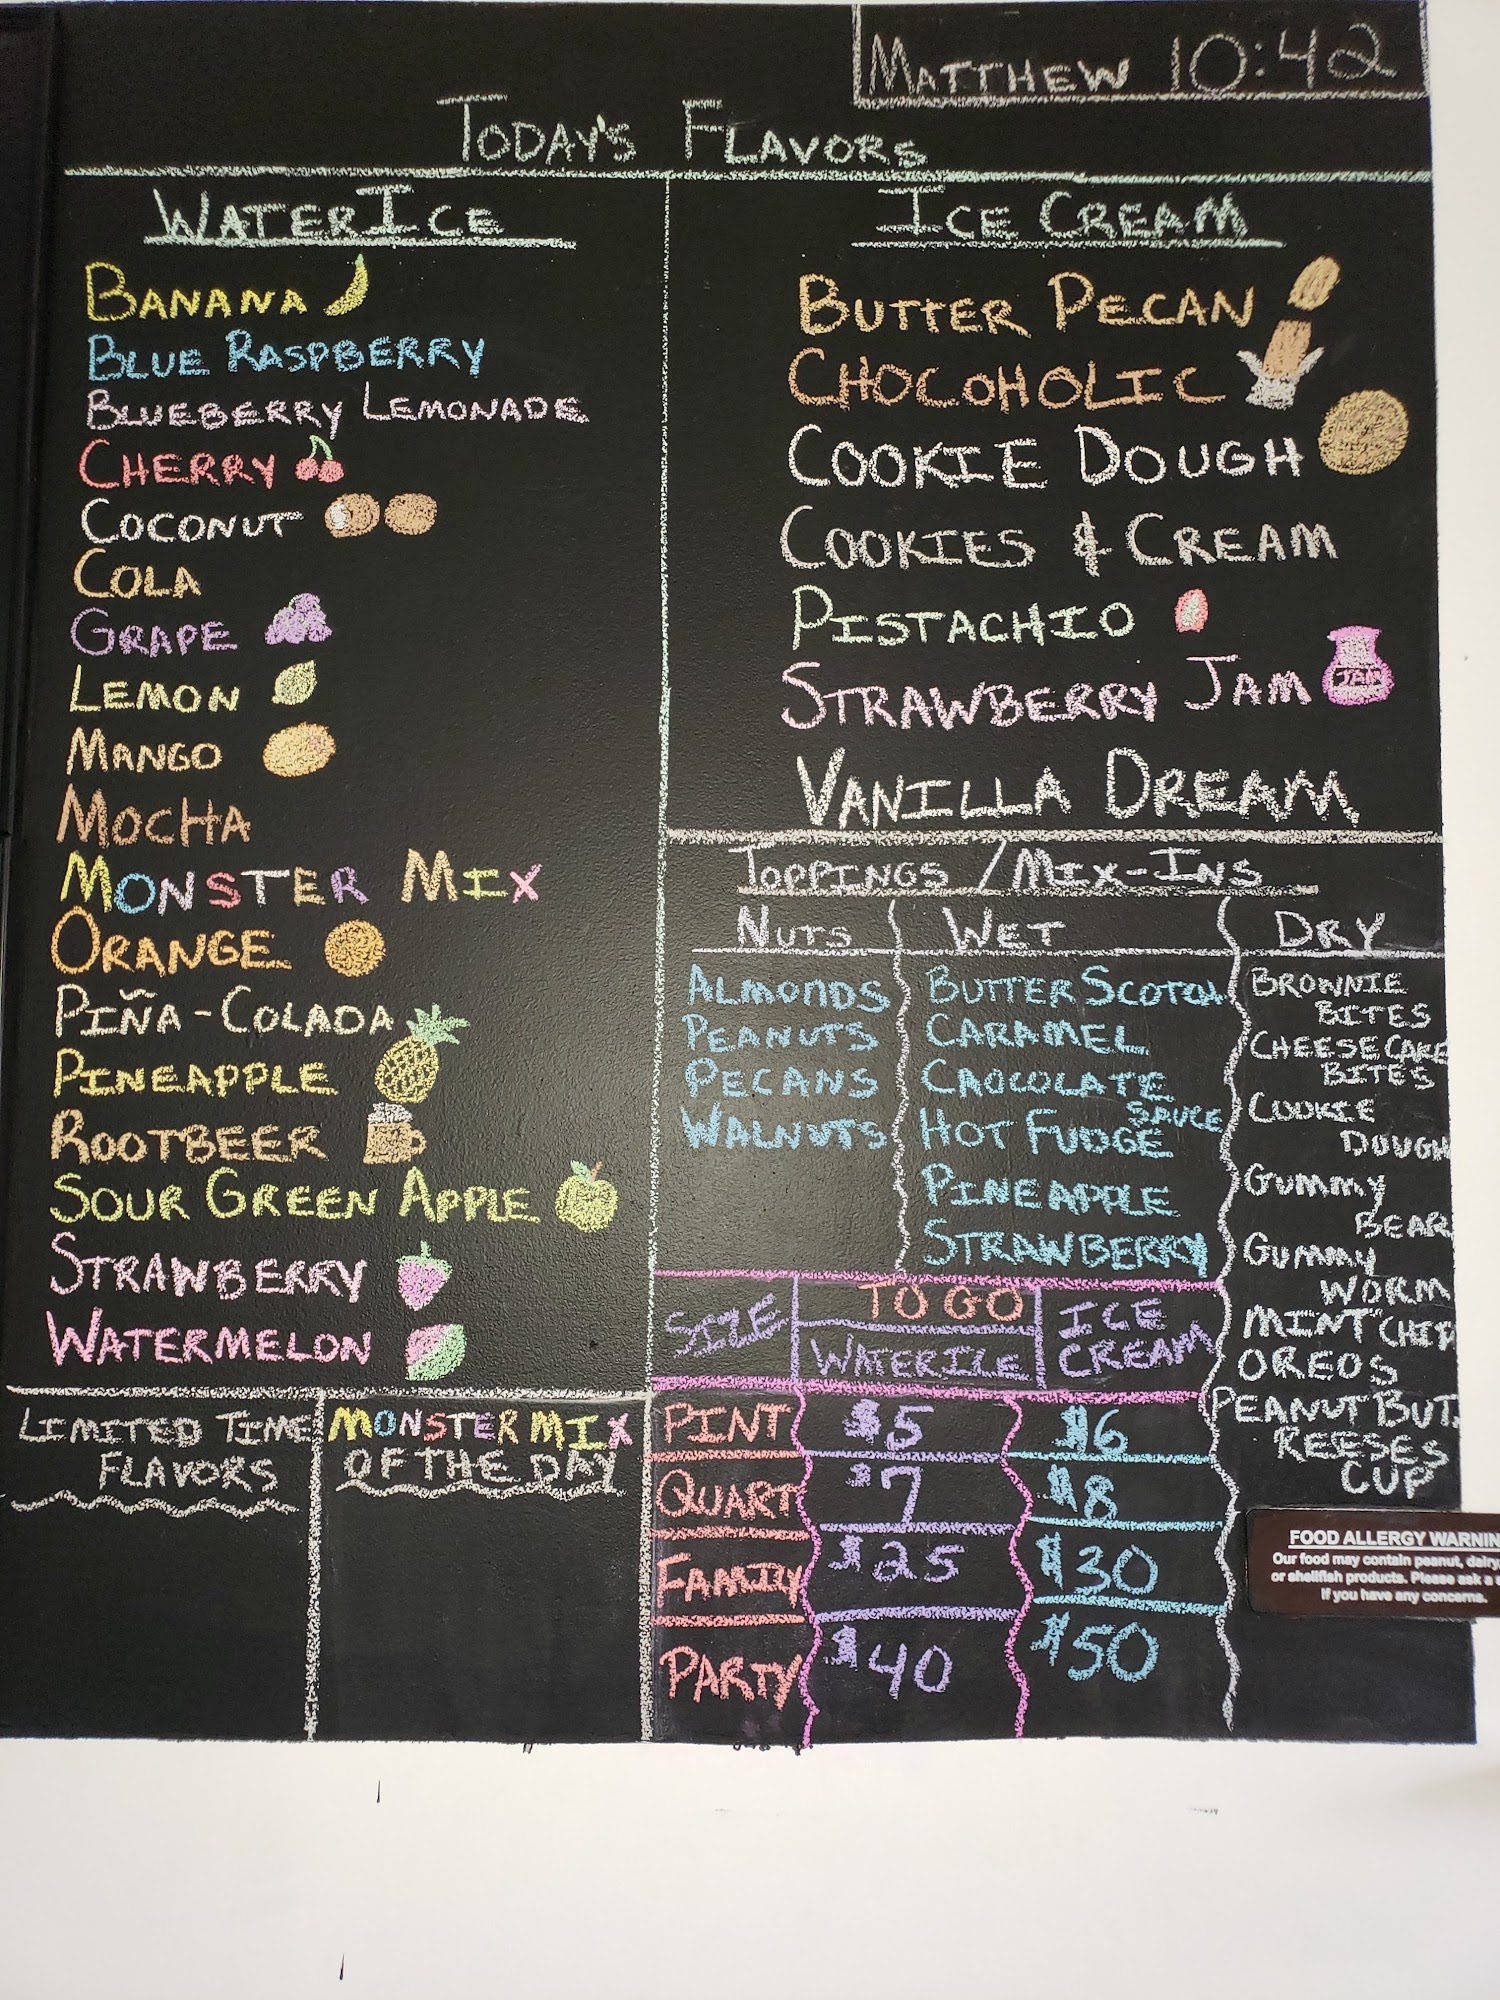 MATTHEW 10:42
TODAY'S FLAVORS
WATERICE
BANANA
BLUE RASPBERRY
BLUEBERRY LEMONADE
CHERRY
COCONUT
COLA
GRAPE
LEMON
MANGO
MOCHA
MONSTER MIX
ORANGE
PIÑA-COLADA
PINEAPPLE
ROOTBEER
SOUR GREEN APPLE
STRAWBERRY
WATERMELON
LIMITED TIME
FLAVORS
MONSTER MIX
OF THE DAY
ICE CREAM
BUTTER PECAN
CHOCOHOLIC
COOKIE DOUGH
COOKIES & CREAM
PISTACHIO
STRAWBERRY JAM
JAM
VANILLA DREAM
TOPPINGS / MIX-INS
NUTS
ALMONDS
PEANUTS
PECANS
WALNUTS
WET
BUTTER SCOTCH
CARAMEL
CHOCOLATE
SAUCE
HOT FUDGE
PINEAPPLE
STRAWBERRY
DRY
BROWNIE
BITES
CHEESECAKE
BITES
COOKIE
DOUGH
GUMMY
BEAR
GUMMY
WORM
MINT CHIP
OREOS
PEANUT BUT.
REESES
CUP
SIZE
TO GO
WATERICE
ICE
CREAM
PINT $5 $6
QUART $7 $8
FAMILY $25 $30
PARTY $40 $50
FOOD ALLERGY WARNIN
Our food may contain peanut, dairy,
or shellfish products. Please ask a
if you have any concerns.